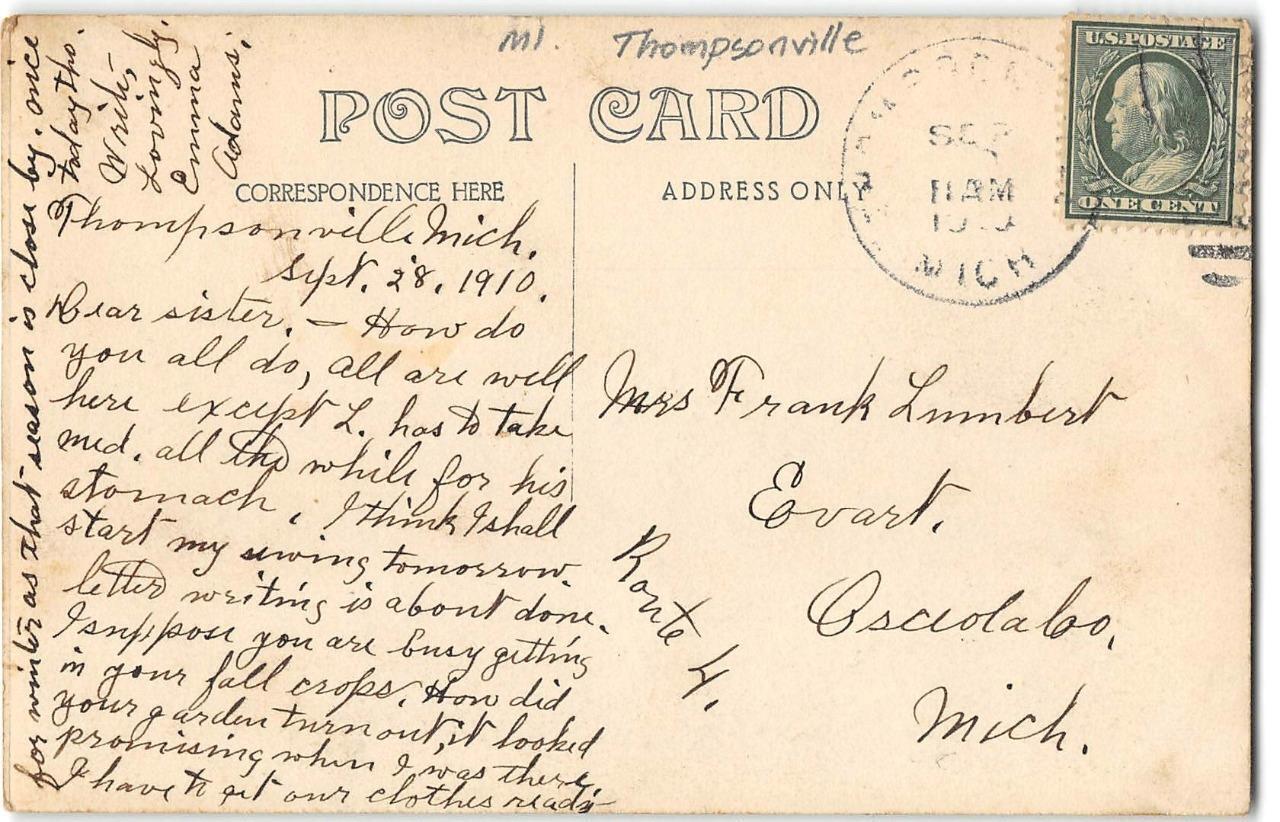 MI. Thompsonville
POST CARD
CORRESPONDENCE HERE
ADDRESS ONLY
SEP
11 AM
MICH
U.S. POSTAGE
ONE CENT
Thompsonville Mich.
Sept. 28, 1910.
Dear sister. — How do
you all do, all are well
here except L. has to take
med. all the while for his
stomach, I think I shall
start my sewing tomorrow.
letter writing is about done.
I suppose you are busy getting
in your fall crops. How did
your garden turn out, it looked
promising when I was there.
I have to get our clothes ready
for winter as that season is close by. nice
today tho.
Write,
Lovingly,
Emma
Adams.
Mrs Frank Lumbert
Evart.
Route 4.
Osceola Co.
Mich.